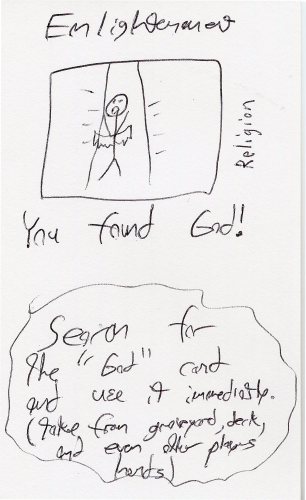 Enlightenment
Religion
You found God!
Search for
the "God" card
and use it immediately.
(take from graveyard, deck,
and even other players
hands)